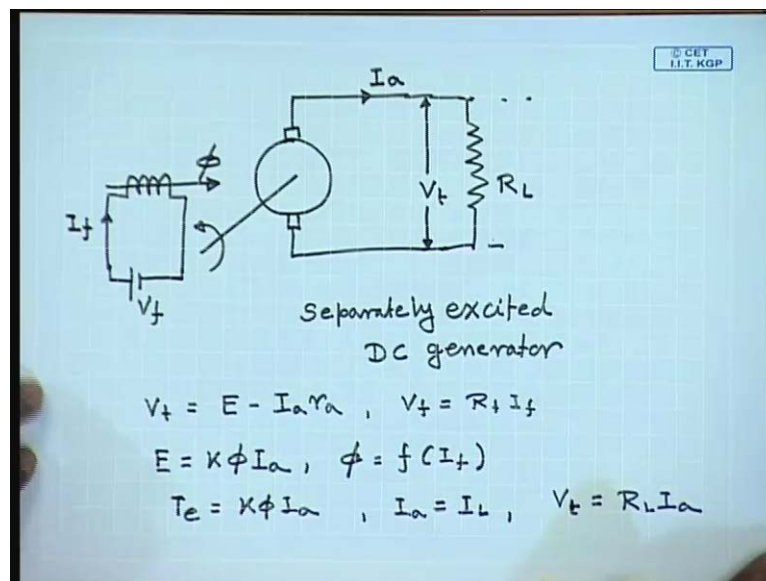 © CET
I.I.T. KGP
Ia
φ
If
Vf
Vt
RL
Separately excited
DC generator
Vt = E - Iara , Vf = Rf If
E = KφIa , φ = f(If)
Te = KφIa , Ia = IL , Vt = RLIa